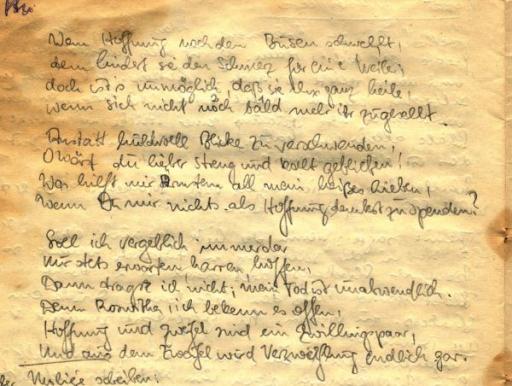 Wem Hoffnung nach den Busen schwellt,
dem lindert sie den Schmerz für eine Weile,
doch ist's unmöglich, daß sie ganz heile,
wenn sich nicht noch bald mehr ihr zugesellt.
Anstatt huldvoll Blicke zu verschwenden,
O wärst du lieber streng und kalt geblieben!
Was hilft mir sonst all mein heißes Lieben,
Wenn Du mir nichts als Hoffnung denkst zu spenden?
Soll ich vergeblich immerdar
Nur stets erwarten, harren, hoffen,
Dann ertrag ich nicht, mein Tod ist unabwendlich.
Denn Roswitha, ich bekenn es offen,
Hoffnung und Zweifel sind ein Zwillingspaar,
Und aus dem Zweifel wird Verzweiflung endlich gar.